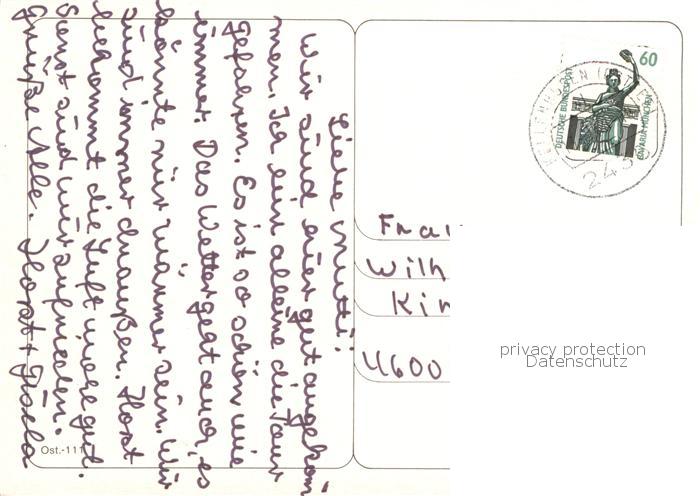 Liebe Mutti!
Wir sind hier gut angekom-
men. Ich bin alleine die Tour
gefahren. Es ist so schön wie
immer. Das Wetter geht auch, es
könnte nur wärmer sein. Wir
sind immer draußen. Horst
bekommt die Luft mehr gut.
Sonst sind wir zufrieden.
Grüße Alle. Horst + Gisela
Ost.-111
60
DEUTSCHE BUNDESPOST
BAVARIA MÜNCHEN
Frau
Wilh
Kir
4600
privacy protection
Datenschutz